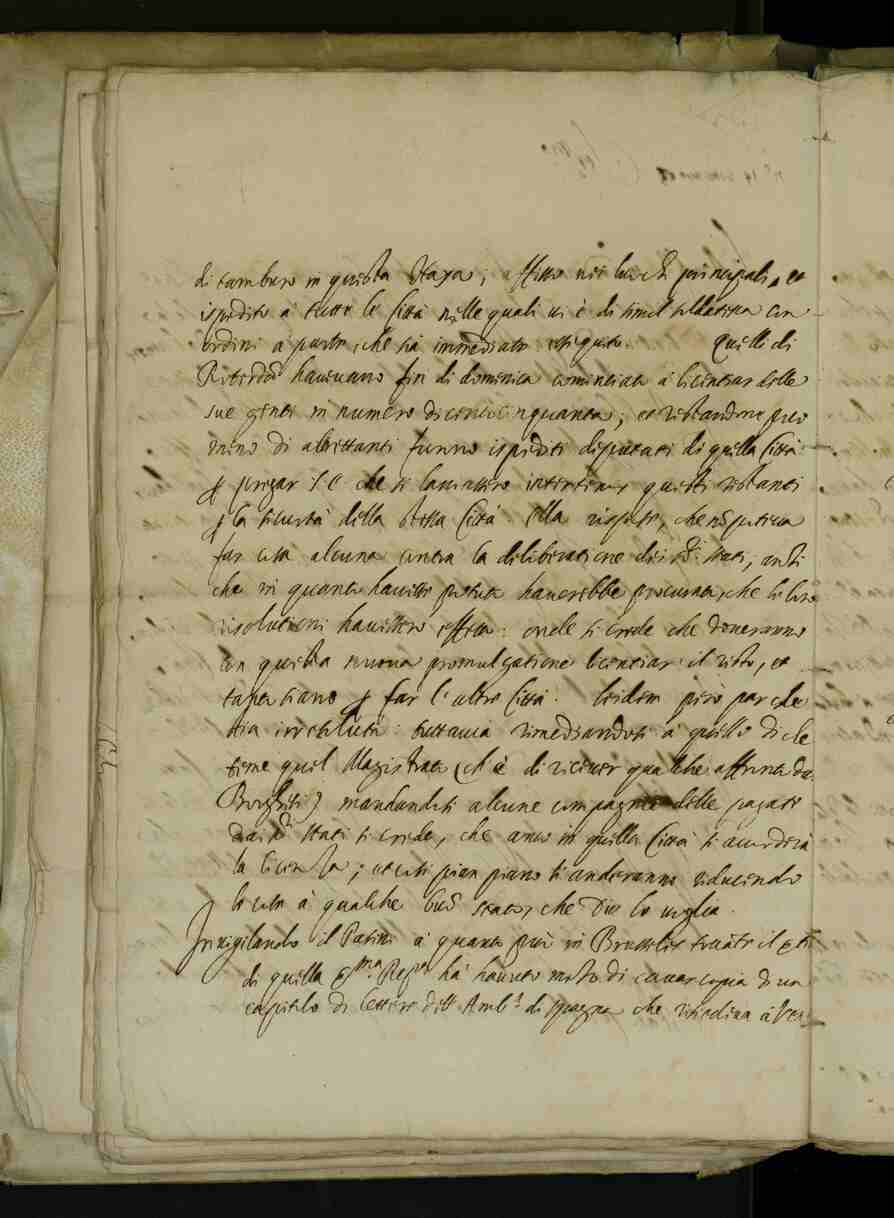 di tamburo in questa Haya; affisso nei luochi principali, et
ispedito à tutte le Città nelle quali vi è di simil soldatesca con
ordini à parte, che sia immediate essequito. Quelli di
Roterdã havevano fin di dominica cominciato à licentiar delle
sue genti in numero di centocinquanta; et restandone poco
meno di altrettanti furono ispediti deputati di quella Città
ꝑ pregar S. E. che si lasciassero intertener questi restanti
ꝑ la sicurtà della stessa Città. Ella rispose, che nõ poteva
far cosa alcuna contra la deliberatione dei SS.ri Stati, anzi
che in quanto havesse potuto haverebbe procurato, che le loro
risolutioni havessero effetto: onde si crede che doveranno
con questa nuova promulgatione licentiar il resto, et
tanto faranno ꝑ far l'altre Città. Leiden però par che
stia irresoluta: tuttavia rimediandosi à quello di che
teme quel Magistrato (ch'è di ricever qualche affronto da
Borghesi) mandandosi alcune compagnie delle pagate
dai SS.ri Stati si crede, che anco in quella Città si accorderà
la licenza; et così pian piano si anderanno riducendo
le cose à qualche buõ stato, che Dio lo voglia.
Invigilando il à quanto può in Brusseles trovãte il
di quella Ser.ma Rep.ca hà havuto modo di cavar copia di un
capitolo di lettere dell'Amb.r di Spagna che risiedeva à Ven